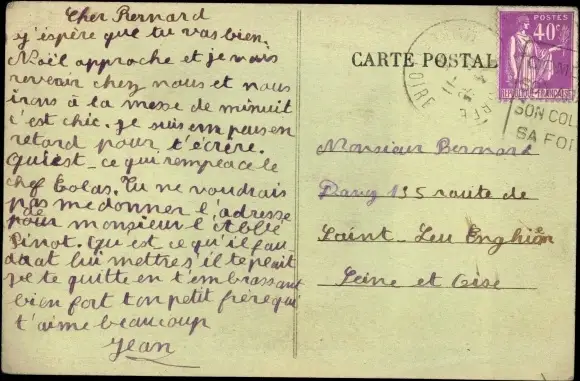 Cher Bernard
j'éspère que tu vas bien.
Noël approche et je vais
revenir chez nous et nous
irons à la messe de minuit
c'est chic. Je suis em peu en
retard pour t'écrere.
Qui est-ce qui rempeace le
chef Colas. Tu ne voudrais
pas me donner l'adresse
de
pour monsieur l'Abbé
Pinot. Qui est ce qu'il fau
drat lui mettre s'il te plait
Je te quitte en t'embrassant
bien fort ton petit frère qui
t'aime beaucoup
Jean
CARTE POSTAL
POSTES
40c
REPUBLIQUE FRANÇAISE
LOIRE
SON COL
SA FOR
Monsieur Bernard
135 route de
Saint-Leu Enghien
Seine et Oise